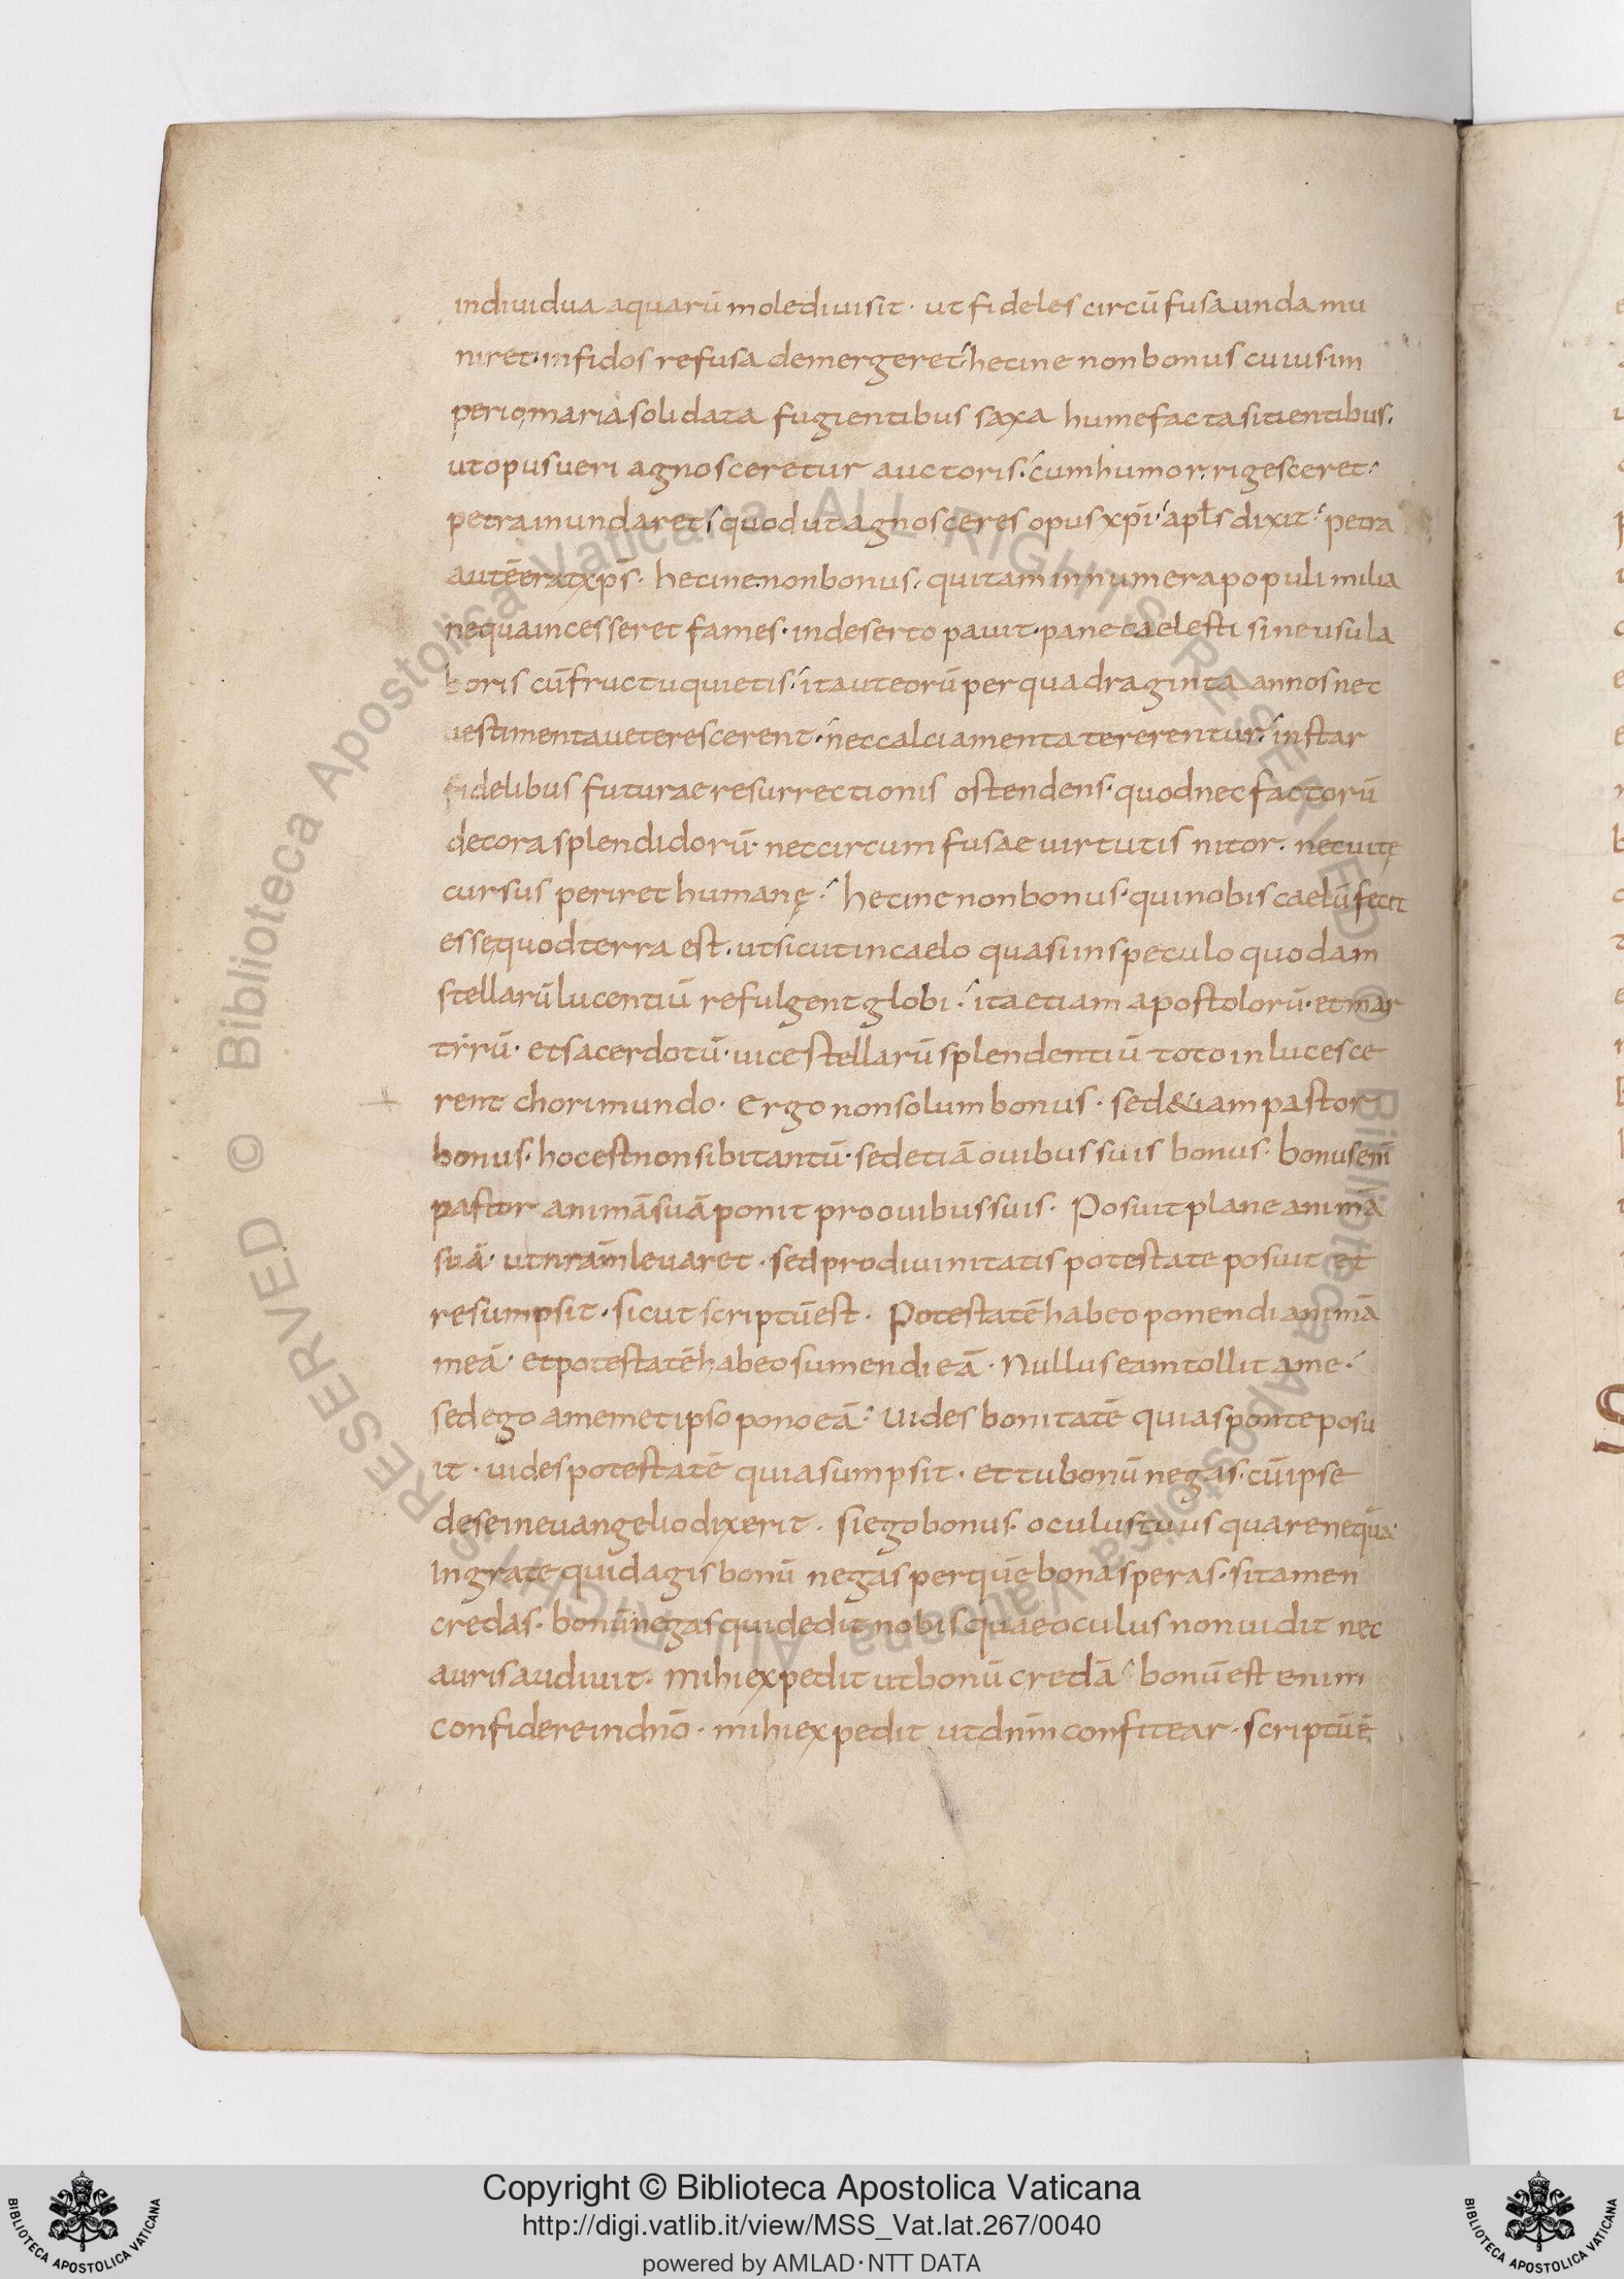 indiuidua aquarū mole diuisit · ut fideles circūfusa unda mu
niret · infidos refusa demergeret · hecine non bonus cuius im
perio maria solidata fugientibus saxa humefacta sitientibus ·
ut opus ueri agnosceretur auctoris · cum humor rigesceret ·
petra inundaret · quod ut agnosceres opus xp̄i · apl̄s dixit · petra
autē erat xp̄s · hecine non bonus · qui tam innumera populi milia
ne qua incesseret fames · in deserto pauit · pane caelesti sine usu la
boris cū fructu quietis · ita ut eorū per quadraginta annos nec
uestimenta ueterescerent · nec calciamenta tererentur · instar
fidelibus futurae resurrectionis ostendens · quod nec factorū
decora splendidorū · nec circumfusae uirtutis nitor · nec uitę
cursus periret humanę · hecine non bonus · qui nobis caelū fecit
esse quod terra est · ut sicut in caelo quasi in speculo quodam
stellarū lucentiū refulgent globi · ita etiam apostolorū · et mar
tyrū · et sacerdotū · uice stellarū splendentiū toto inlucesce
rent chori mundo · Ergo non solum bonus · sed &iam pastor
bonus · hoc est non sibi tantū · sed etiā ouibus suis bonus · bonus enī
pastor animā suā ponit pro ouibus suis · Posuit plane animā
suā · ut nr̄am leuaret · sed pro diuinitatis potestate posuit et
resumpsit · sicut scriptū est · Potestatē habeo ponendi animā
meā · et potestatē habeo sumendi eā · Nullus eam tollit a me ·
sed ego a memetipso pono eā · uides bonitatē quia sponte posu
it · uides potestatē quia sumpsit · et tu bonū negas · cū ipse
de se in euangelio dixerit · si ego bonus · oculus tuus quare nequā ·
Ingrate quid agis bonū negas per quē bona speras · si tamen
credas · bonū negas qui dedit nobis quae oculus non uidit nec
auris audiuit · mihi expedit ut bonū credā · bonū est enim
confidere in dn̄o · mihi expedit ut dn̄m confitear · scriptū ē
Biblioteca Apostolica Vaticana ALL RIGHTS RESERVED © Biblioteca Apostolica Vaticana ALL RIGHTS RESERVED ©
BIBLIOTECA APOSTOLICA VATICANA
Copyright © Biblioteca Apostolica Vaticana
http://digi.vatlib.it/view/MSS_Vat.lat.267/0040
powered by AMLAD·NTT DATA
BIBLIOTECA APOSTOLICA VATICANA